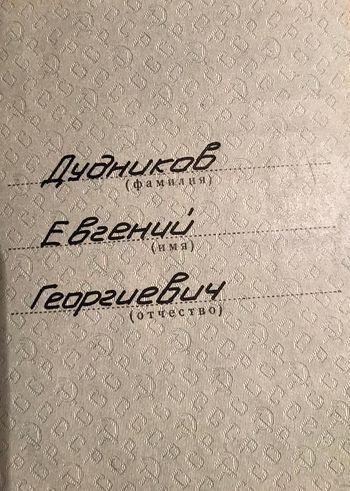 Дудников
(фамилия)
Евгений
(имя)
Георгиевич
(отчество)